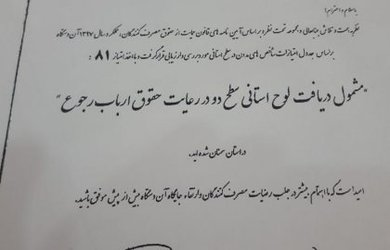 با سلام و احترام؛
نظر به همت و تلاش جنابعالی و مجموعه تحت نظر و بر اساس آیین نامه های قانون حمایت از حقوق مصرف کنندگان، عملکرد سال ۱۳۹۷ آن دستگاه
بر اساس جدول امتیازات شاخص های مدون در سطح استانی مورد بررسی و ارزیابی قرار گرفت و با اخذ امتیاز ( ۸۱ )
"مشمول دریافت لوح استانی سطح دو در رعایت حقوق ارباب رجوع"
در استان سمنان شده اید.
امید است که با اهتمام بیشتر در جلب رضایت مصرف کنندگان و ارتقاء جایگاه آن دستگاه بیش از پیش موفق باشید.